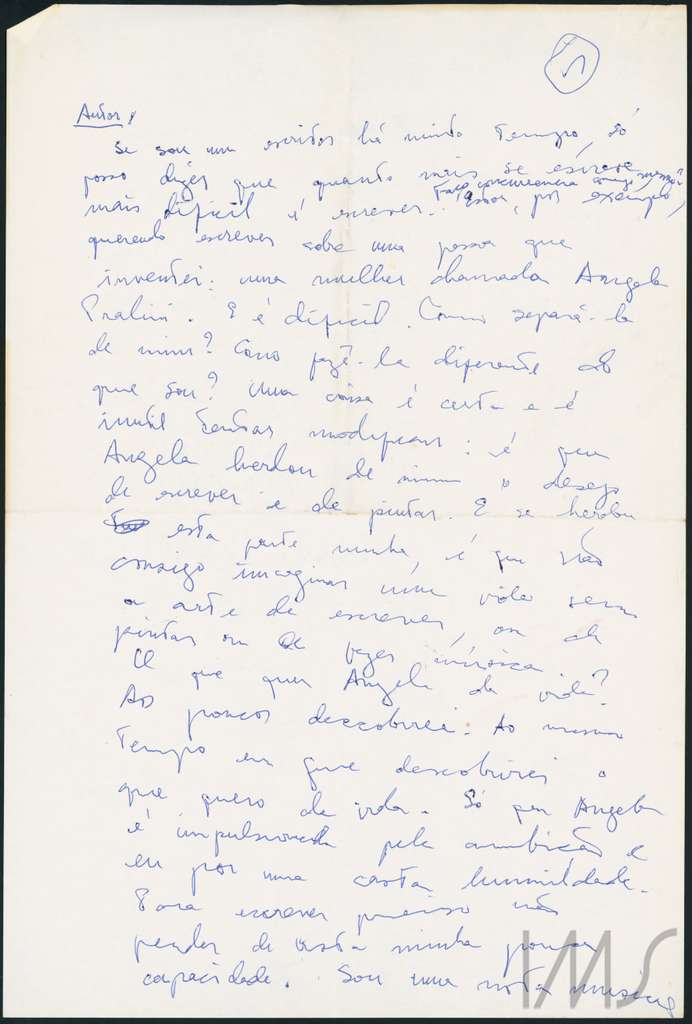 5
Autor,
Se sou um escritor há muito tempo, só
posso dizer que quanto mais se escreve
mais difícil é escrever. Faço concorrência comigo mesmo?
Estou, por exemplo,
querendo escrever sobre uma pessoa que
inventei: uma mulher chamada Angela
Pralini. E é difícil. Como separá-la
de mim? Como fazê-la diferente do
que sou? Uma coisa é certa e é
inutil tentar modificar: é que
Angela herdou de mim o desejo
de escrever e de pintar. E se herdou
esta parte minha, é que não
consigo imaginar uma vida sem
a arte de escrever, ou de
pintar ou de fazer música.
O que quer Angela da vida?
Aos poucos descobrirei. Ao mesmo
tempo em que descobrirei o
que quero da vida. Só que Angela
é impulsionada pela ambição e
eu por uma casta humildade.
Para escrever preciso não
perder de vista minha pouca
capacidade. Sou uma nota musical
IMS